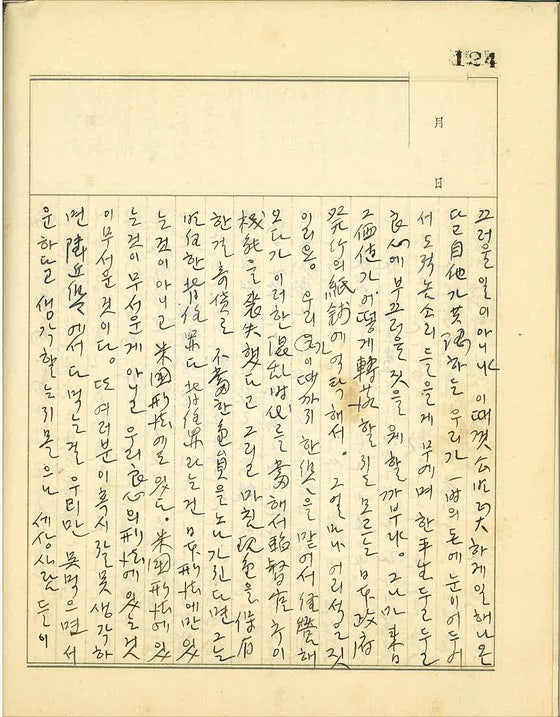 124
月
日
끄러울 일이 아니냐 이때껏 公明正大하게 일해 나온
다고 自他가 共認하는 우리가 一時의 돈에 눈이 어두어
서 도적놈 소리들을 게 무에며 한平生을 두고두고
良心에 부끄러울 짓을 위할까부냐. 그나마 來日
그 價値가 어떻게 轉換할 지를 모르는 日本政府
發行의 紙錢에 억탁해서. 그 얼마나 어리석을 짓
이리요. 우리 이때까지 한 俱을 맡어서 經營해
오다가 이러한 混亂時代를 當해서 監督官主이
機能을 喪失했다고 그리고 마침 現金을 保有
한걸 奇貨로 不當한 金員을 노나 가진다면 그는
旺任한 背任罪다 背任罪라는건 日本刑法에만 있
는 것이 아니고 米國刑法에도 있다. 米國刑法에 있
는 것이 무서운게 아니고 우리 良心의 刑法에 있는 것
이 무서운 것이다. 또 여러분이 혹시 잘못 생각하
면 隣近俱에서 다 먹는걸 우리만 못먹으면 서
운하다고 생각할는지 몰으나 세상사람들이